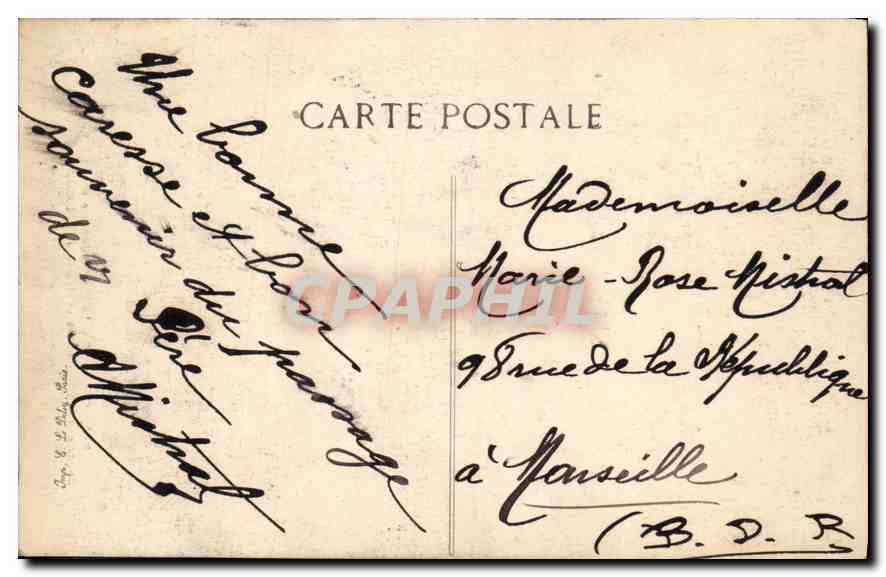 CARTE POSTALE
Une bonne
caresse et bon
souvenir du passage
de
Père
Mistral
Mademoiselle
Marie-Rose Mistral
98 rue de la République
à Marseille
(B. D. R.
CPAPHIL
Imp. E. Le Deley, Paris.